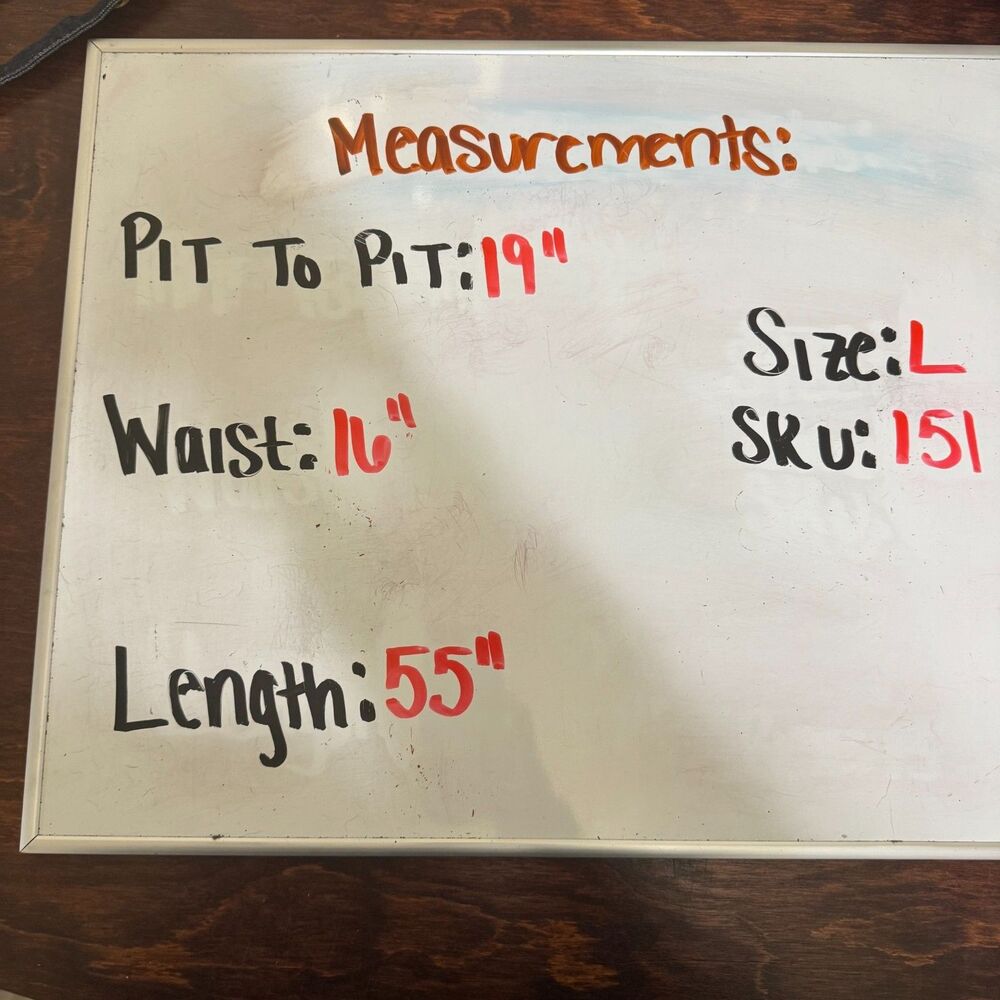 Measurements:
PIT TO PIT: 19"
Size: L
Waist: 16"
SKU: 151
Length: 55"